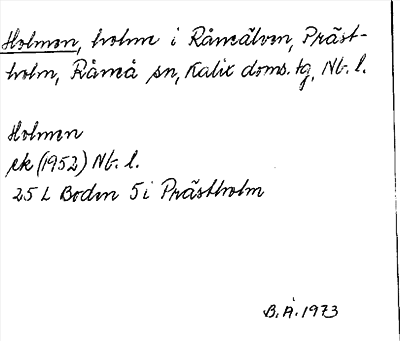 Holmen, holme i Råneälven, Präst-
holm, Råneå sn, Kalix doms. tg, Nb. l.
Holmen
ek (1952) Nb. l.
25 L Boden 5 i Prästholm
B. Å. 1973